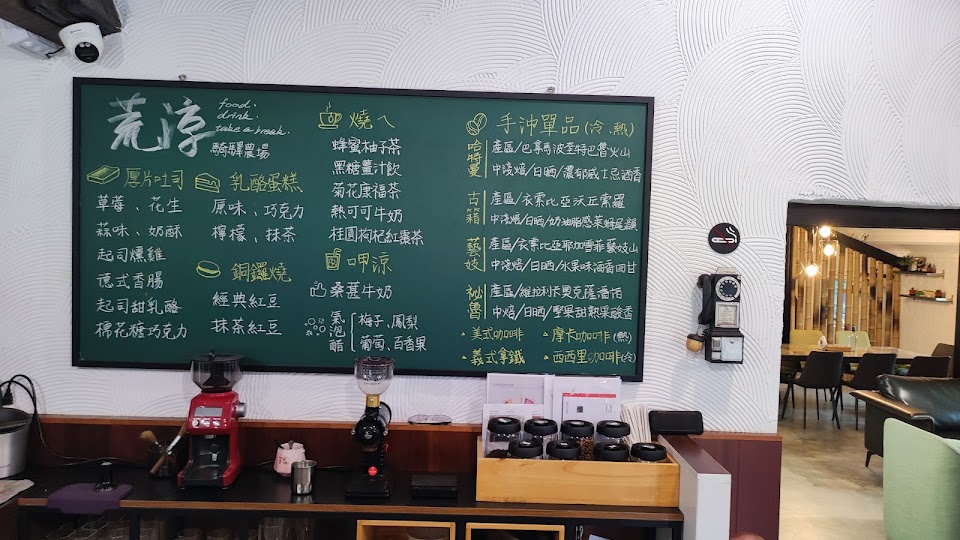 荒淳
food.
drink.
take a break.
騎驛農場
厚片吐司
草莓、花生
蒜味、奶酥
起司燻雞
德式香腸
起司甜乳酪
棉花糖巧克力
乳酪蛋糕
原味、巧克力
檸檬、抹茶
銅鑼燒
經典紅豆
抹茶紅豆
燒ㄟ
蜂蜜柚子茶
黑糖薑汁飲
菊花康福茶
熱可可牛奶
桂圓枸杞紅棗茶
呷涼
桑葚牛奶
氣泡醋
梅子、鳳梨
葡萄、百香果
手沖單品(冷.熱)
哈特曼
產區/巴拿馬波奎特巴魯火山
中淺焙/日晒/濃郁威士忌酒香
古箱
產區/衣索比亞沃丘索羅
中淺焙/日晒/奶油脂感萊姆尾韻
藝妓
產區/衣索比亞耶加雪菲藝妓山
中淺焙/日晒/水果味酒香回甘
祕魯
中焙/日晒/堅果甜熟果酸香
美式咖啡
摩卡咖啡(熱)
義式拿鐵
西西里咖啡(冷)